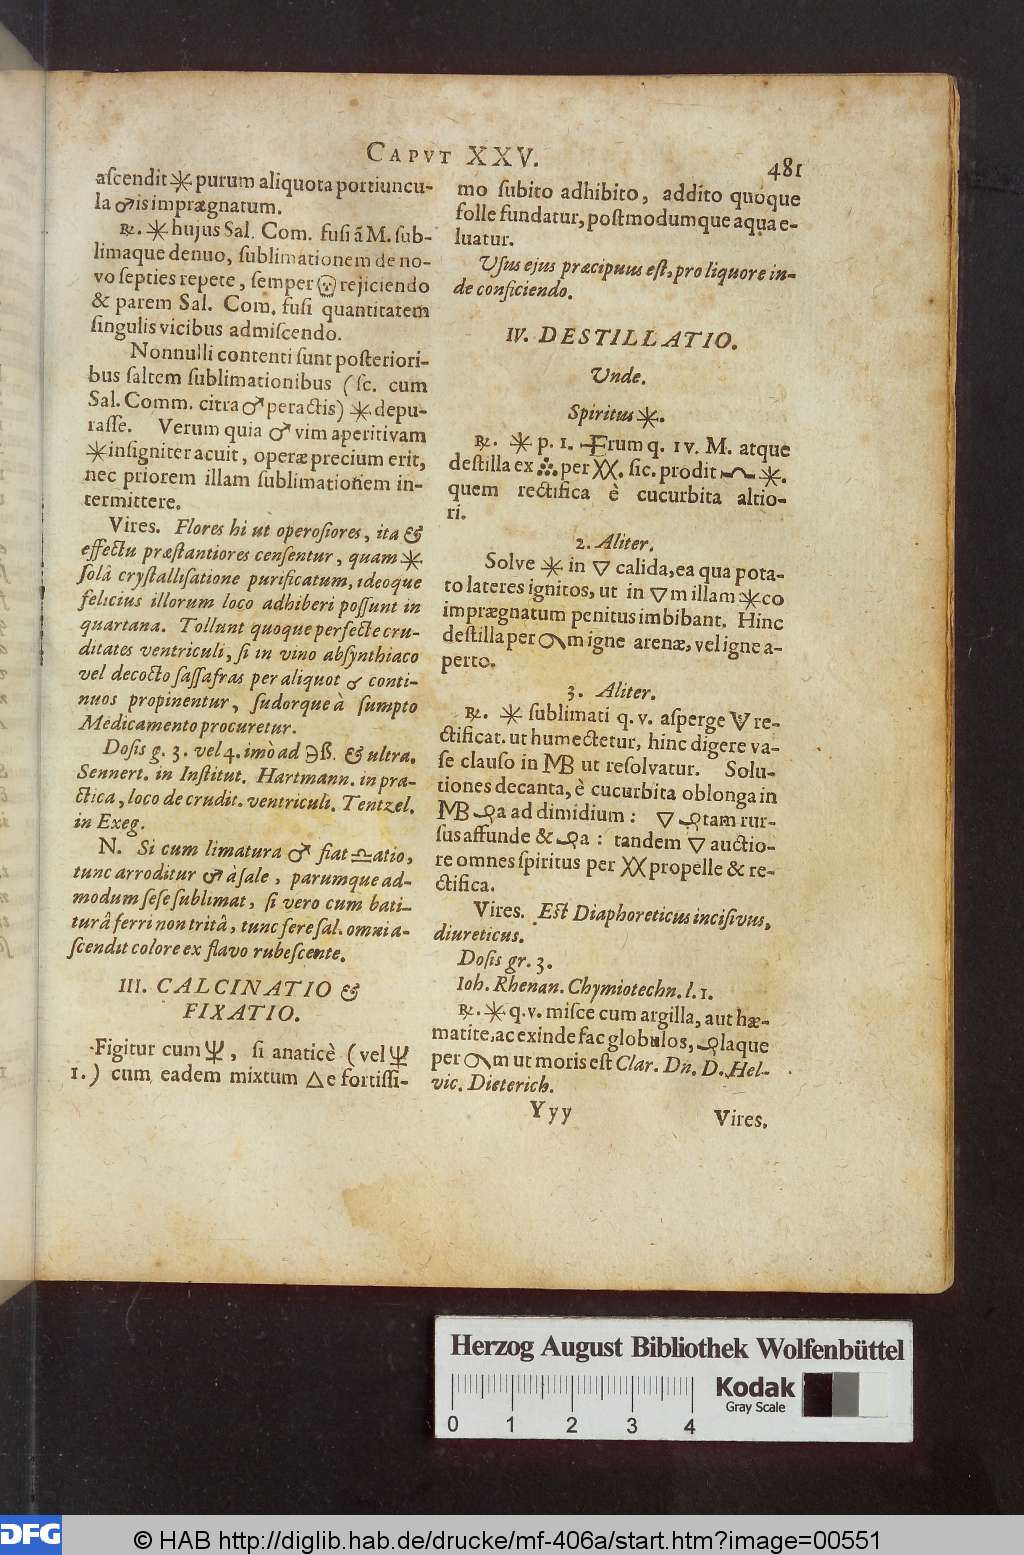 CAPVT XXV.
481
ascendit ✳ purum aliquota portiuncu-
la ♂is imprægnatum.
℞. ✳ hujus Sal. Com. fusi ā M. sub-
limaque denuo, sublimationem de no-
vo septies repete, semper ☠ rejiciendo
& parem Sal. Com. fusi quantitatem
singulis vicibus admiscendo.
Nonnulli contenti sunt posteriori-
bus saltem sublimationibus (sc. cum
Sal. Comm. citra ♂ peractis) ✳ depu-
rasse. Verum quia ♂ vim aperitivam
✳ insigniter acuit, operæ precium erit,
nec priorem illam sublimationem in-
termittere.
Vires. Flores hi ut operosiores, ita &
effectu præstantiores censentur, quam ✳
solâ crystallisatione purificatum, ideoque
felicius illorum loco adhiberi possunt in
quartana. Tollunt quoque perfecte cru-
ditates ventriculi, si in vino absynthiaco
vel decocto sassafras per aliquot conti-
nuos propinentur, sudorque à sumpto
Medicamento procuretur.
Dosis g. 3. vel 4. imò ad ℈ß. & ultra.
Sennert. in Institut. Hartmann. in pra-
ctica, loco de crudit. ventriculi. Tentzel.
in Exeg.
N. Si cum limatura ♂ fiat ♎atio,
tunc arroditur ♂ à sale, parumque ad-
modum sese sublimat, si vero cum bati-
turâ ferri non tritâ, tunc fere sal. omni a-
scendit colore ex flavo rubescente.
III. CALCINATIO &
FIXATIO.
Figitur cum , si anaticè (vel
1.) cum eadem mixtum △e fortissi-
mo subito adhibito, addito quoque
folle fundatur, postmodumque aqua e-
luatur.
Usus ejus præcipuus est, pro liquore in-
de conficiendo.
IV. DESTILLATIO.
Unde.
Spiritus ✳.
℞. ✳ p. 1. rum q. IV. M. atque
destilla ex per XX. sic. prodit ✳.
quem rectifica è cucurbita altio-
ri.
2. Aliter.
Solve ✳ in ▽ calida, ea qua pota-
to lateres ignitos, ut in ▽m illam ✳co
imprægnatum penitus imbibant. Hinc
destilla per m igne arenæ, vel igne a-
perto.
3. Aliter.
℞. ✳ sublimati q. v. asperge re-
ctificat. ut humectetur, hinc digere va-
se clauso in MB ut resolvatur. Solu-
tiones decanta, è cucurbita oblonga in
MB a ad dimidium: ▽ tam rur-
sus affunde & a: tandem ▽ auctio-
re omnes spiritus per XX propelle & re-
ctifica.
Vires. Est Diaphoreticus incisivus,
diureticus.
Dosis gr. 3.
Ioh. Rhenan. Chymiotechn. l. 1.
℞. ✳ q. v. misce cum argilla, aut hæ-
matite, ac exinde fac globulos, laque
per m ut moris est Clar. Dn. D. Hel-
vic. Dieterich.
Yyy
Vires.
Herzog August Bibliothek Wolfenbüttel
Kodak
Gray Scale
0 1 2 3 4
DFG
© HAB http://diglib.hab.de/drucke/mf-406a/start.htm?image=00551